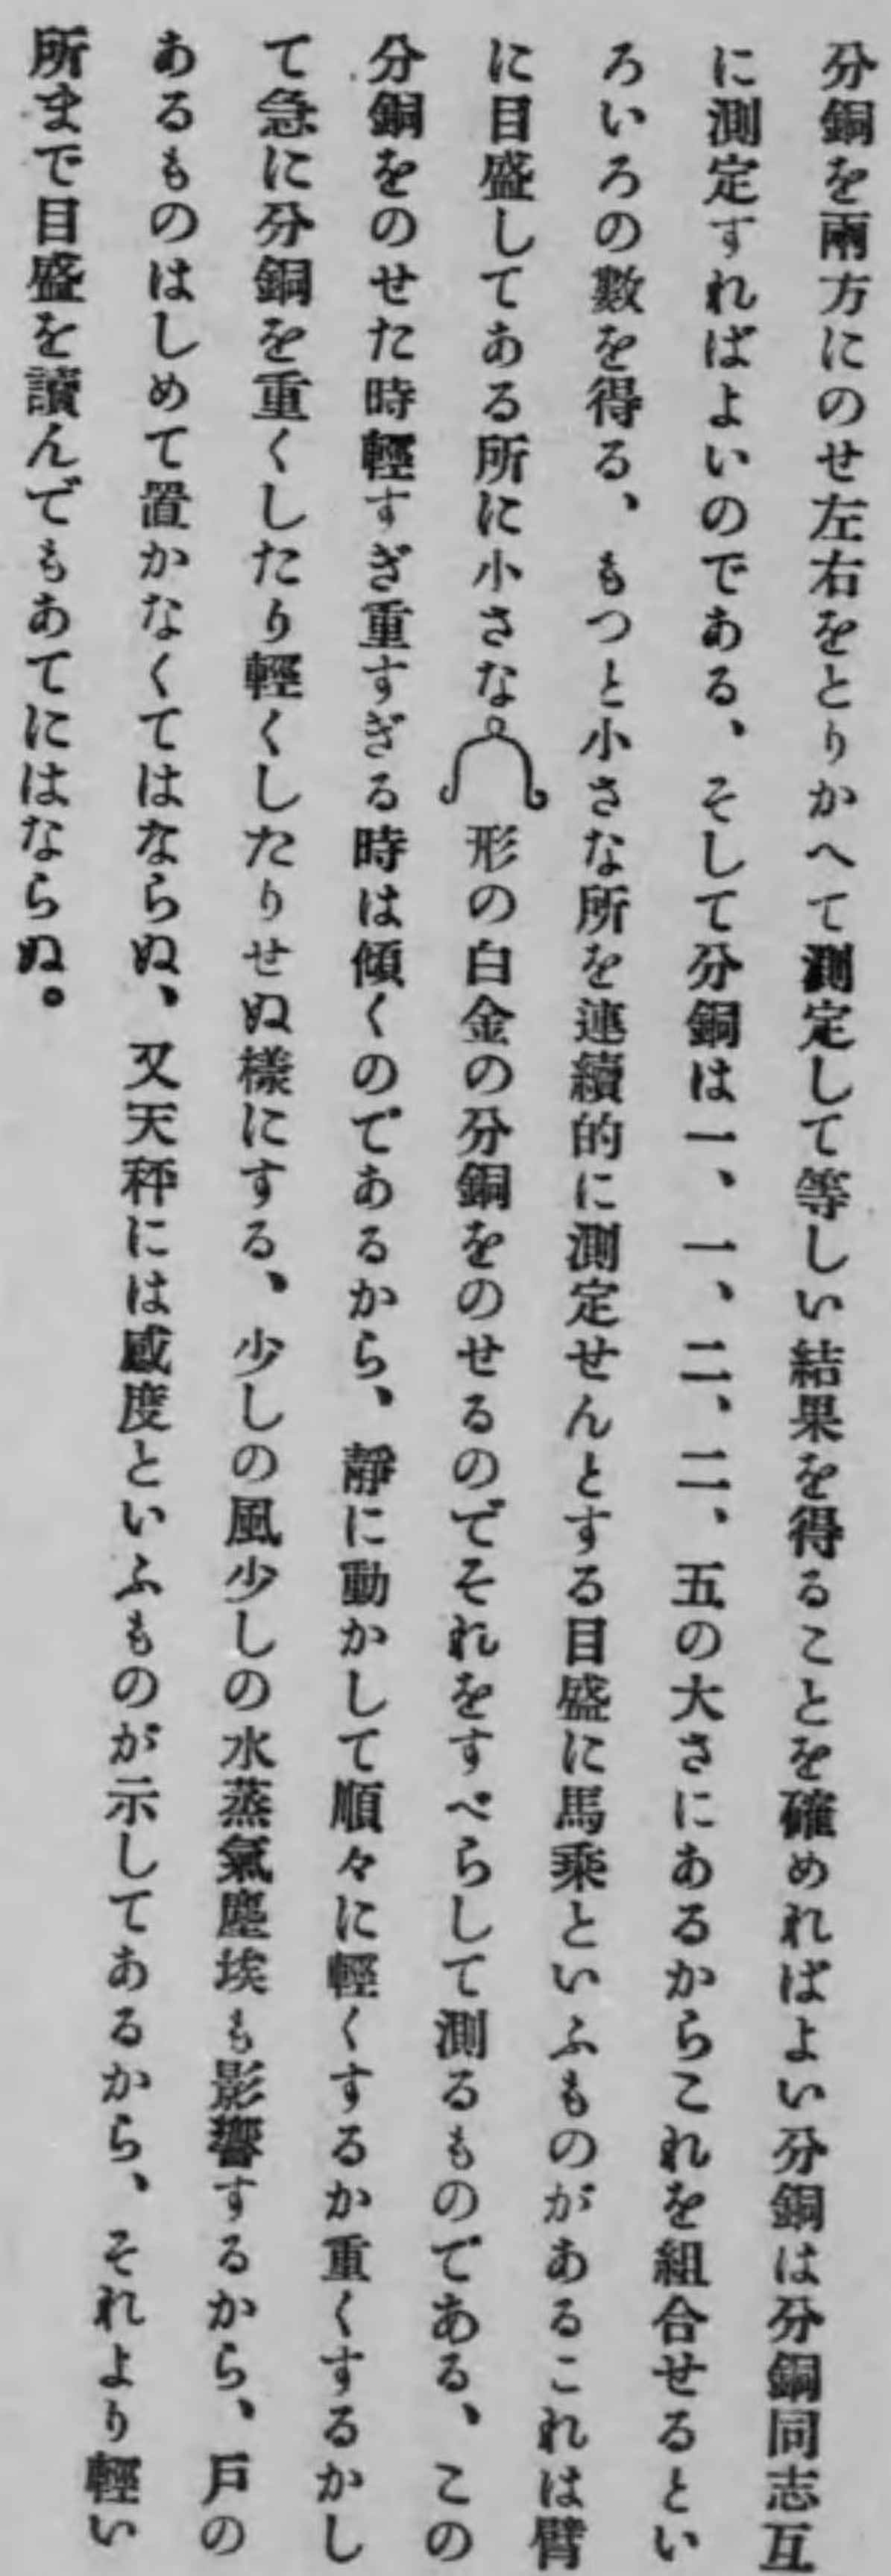 分銅を兩方にのせ左右をとりかへて測定して等しい結果を得ることを確めればよい分銅は分銅同志互
に測定すればよいのである、そして分銅は一、一、二、二、五の大さにあるからこれを組合せるとい
ろいろの數を得る、もつと小さな所を連續的に測定せんとする目盛に馬乘といふものがあるこれは臂
に目盛してある所に小さな形の白金の分銅をのせるのでそれをすべらして測るものである、この
分銅をのせた時輕すぎ重すぎる時は傾くのであるから、靜に動かして順々に輕くするか重くするかし
て急に分銅を重くしたり輕くしたりせぬ樣にする、少しの風少しの水蒸氣塵埃も影響するから、戸の
あるものはしめて置かなくてはならぬ、又天秤には感度といふものが示してあるから、それより輕い
所まで目盛を讀んでもあてにはならぬ。